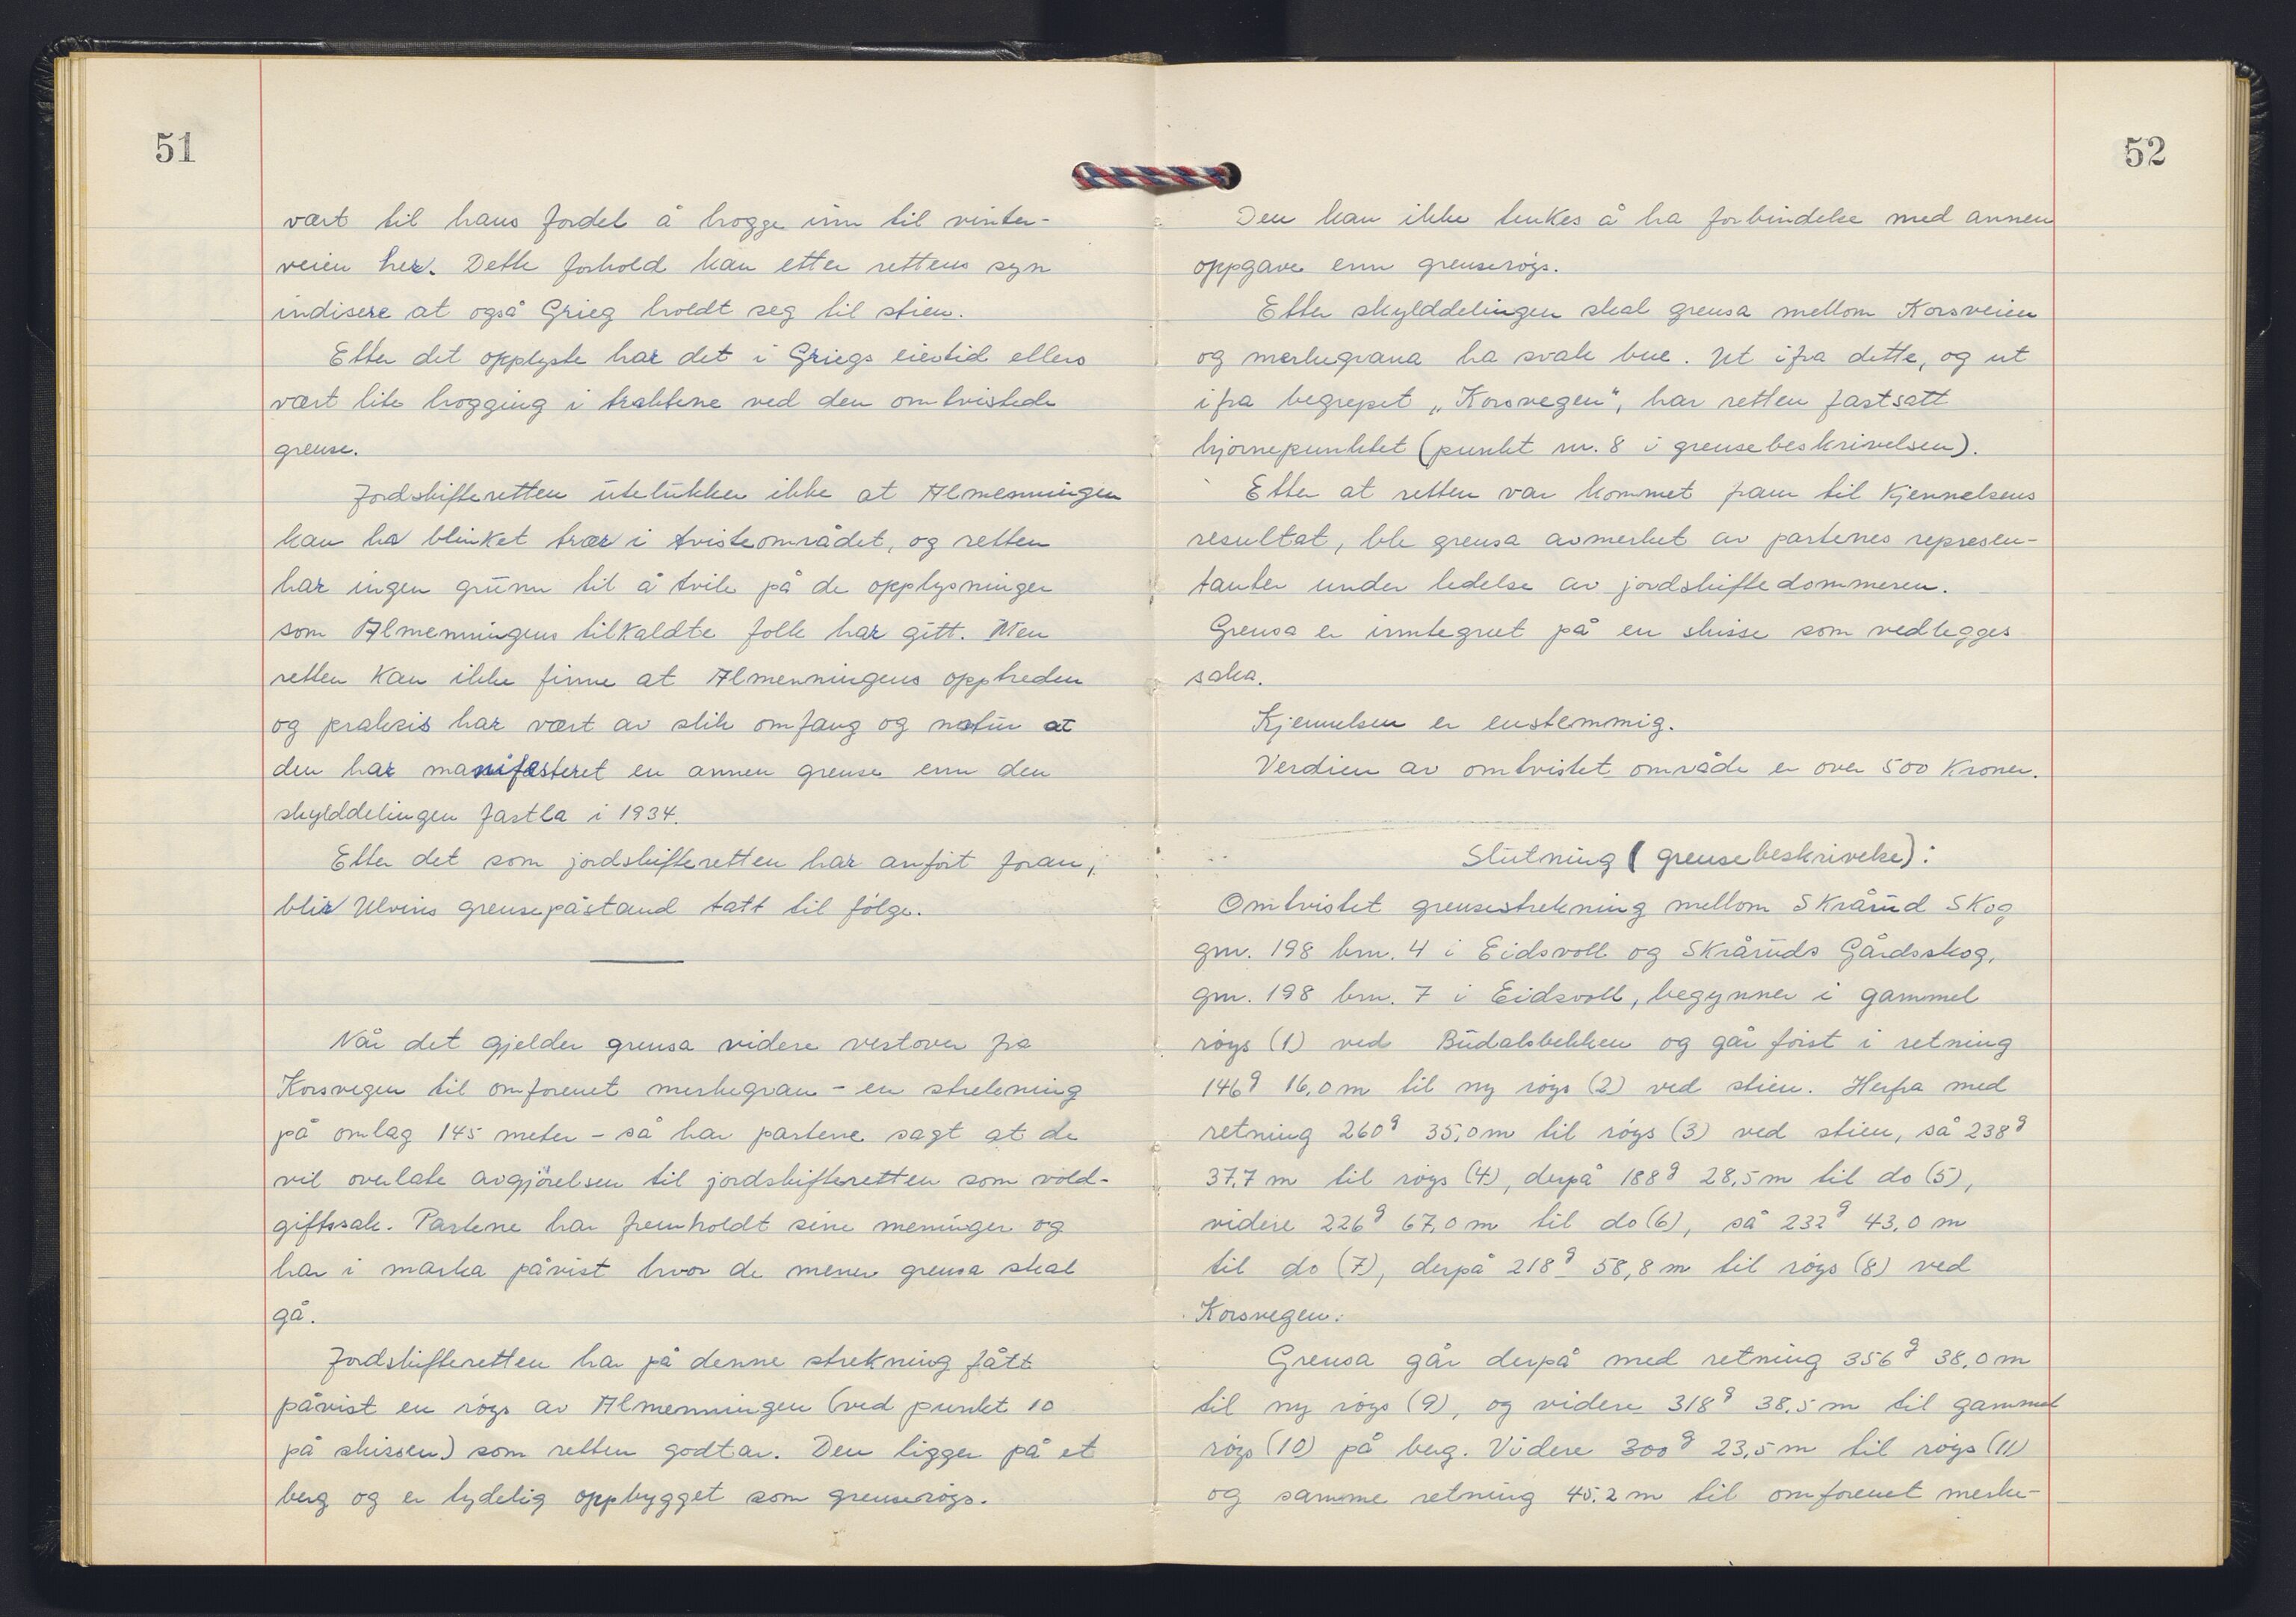 51
vært til hans fordel å hogge inn til vinter-
veien her. Dette forhold kan etter rettens syn
indisere at også Grieg holdt seg til stien.
Etter det opplyste har det i Griegs eiertid ellers
vært lite hogging i traktene ved den omtvistede
grense.
Jordskifteretten utelukker ikke at Almenningen
kan ha blinket trær i tvisteområdet, og retten
har ingen grunn til å tvile på de opplysninger
som Almenningens tilkaldte folk har gitt. Men
retten kan ikke finne at Almenningens opptreden
og praksis har vært av slik omfang og natur at
den har manifesteret en annen grense enn den
skylddelingen fastla i 1934.
Etter det som jordskifteretten har anført foran,
blir Ulvins grensepåstand tatt til følge.
Når det gjelder grensa videre vestover fra
Korsvegen til omforenet merkegran - en strekning
på omlag 145 meter - så har partene sagt at de
vil overlate avgjørelsen til jordskifteretten som vold-
giftssak. Partene har fremholdt sine meninger og
har i marka påvist hvor de mener grensa skal
gå.
Jordskifteretten har på denne strekning fått
påvist en røys av Almenningen (ved punkt 10
på skissen) som retten godtar. Den ligger på et
berg og er tydelig oppbygget som grenserøys.
52
Den kan ikke tenkes å ha forbindelse med annen
oppgave enn grenserøys.
Etter skylddelingen skal grensa mellom Korsveien
og merkegrana ha svak bue. Ut ifra dette, og ut
ifra begrepet „Korsvegen", har retten fastsatt
hjørnepunktet (punkt nr. 8 i grensebeskrivelsen).
Etter at retten var kommet fram til kjennelsens
resultat, ble grensa avmerket av partenes represen-
tanter under ledelse av jordskiftedommeren.
Grensa er inntegnet på en skisse som vedlegges
saka.
Kjennelsen er enstemmig.
Verdien av omtvistet område er over 500 kroner.
Slutning (grensebeskrivelse):
Omtvistet grensestrekning mellom Skrårud Skog
gnr. 198 bnr. 4 i Eidsvoll og Skråruds Gårdsskog,
gnr. 198 bnr. 7 i Eidsvoll, begynner i gammel
røys (1) ved Budalsbekken og går først i retning
146g 16,0 m til ny røys (2) ved stien. Herfra med
retning 260g 35,0 m til røys (3) ved stien, så 238g
37,7 m til røys (4), derpå 188g 28,5 m til do (5),
videre 226g 67,0 m til do (6), så 232g 43,0 m
til do (7), derpå 218g 58,8 m til røys (8) ved
Korsvegen.
Grensa går derpå med retning 356g 38,0 m
til ny røys (9), og videre 318g 38,5 m til gammel
røys (10) på berg. Videre 300g 23,5 m til røys (11)
og samme retning 45,2 m til omforenet merke-